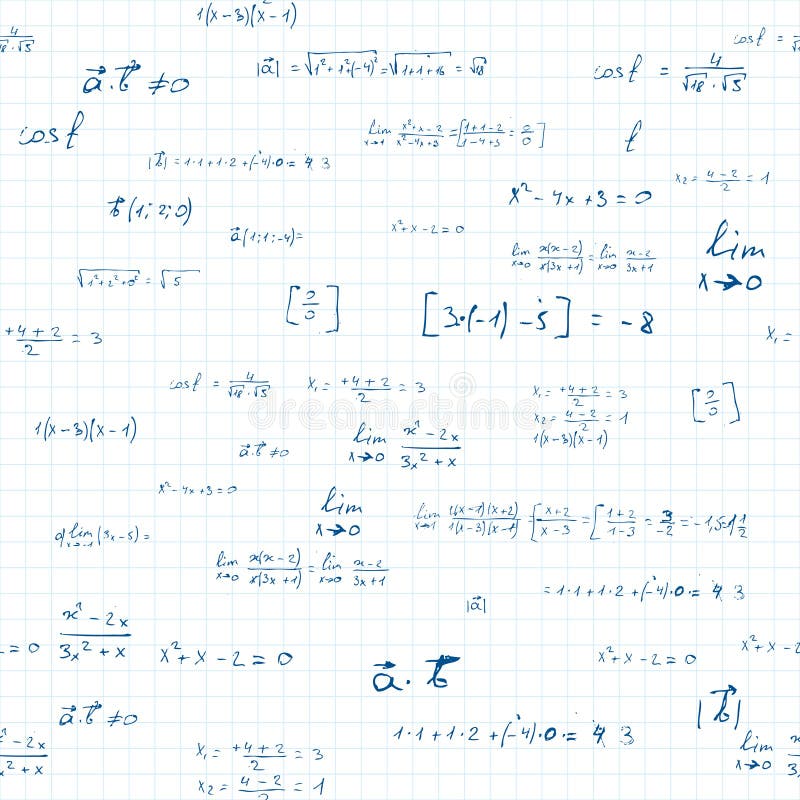 1(x-3)(x-1)
4/√18·√5
cos ƒ =
|a⃗| = √1²+1²+(-4)² = √1+1+16 = √18
cos ƒ = 4/√18·√5
a⃗·b⃗ ≠0
cos ƒ
lim x→1 x²+x-2/x²-4x+3 = [1+1-2/1-4+3 = 0/0]
ƒ
|b⃗| = 1·1+1·2+(-4)·0 = 4 3
x₂ = 4-2/2 = 1
x²-4x+3=0
b⃗(1;2;0)
a⃗(1;1;-4)=
x²+x-2=0
lim x→0 x(x-2)/x(3x+1) = lim x→0 x-2/3x+1
lim x→0
√1²+2²+0² = √5
[0/0]
[3·(-1)-5] = -8
+4+2/2 = 3
x₁=
cos ƒ = 4/√18·√5
x₁ = +4+2/2 = 3
x₁ = +4+2/2 = 3
x₂ = 4-2/2 = 1
1(x-3)(x-1)
[0/0]
1(x-3)(x-1)
a⃗·b⃗ ≠0
lim x→0 x²-2x/3x²+x
dreamstime
x²-4x+3=0
lim x→0
lim x→1 1(x-1)(x+2)/1(x-3)(x-1) = [x+2/x-3 = [1+2/1-3 = 3/-2 = -1,5=1 1/2
lim x→-1 (3x-5)=
lim x→0 x(x-2)/x(3x+1) = lim x→0 x-2/3x+1
|a⃗|
= 1·1+1·2+(-4)·0 = 4 3
=0
x²-2x/3x²+x
x²+x-2=0
a⃗·b⃗
x²+x-2=0
x²+x-2
a⃗·b⃗ ≠0
|b⃗|
1·1+1·2+(-4)·0 = 4 3
x²-2x/3x²+x
x₁ = +4+2/2 = 3
x₂ = 4-2/2 = 1
lim x→0 x²/3x